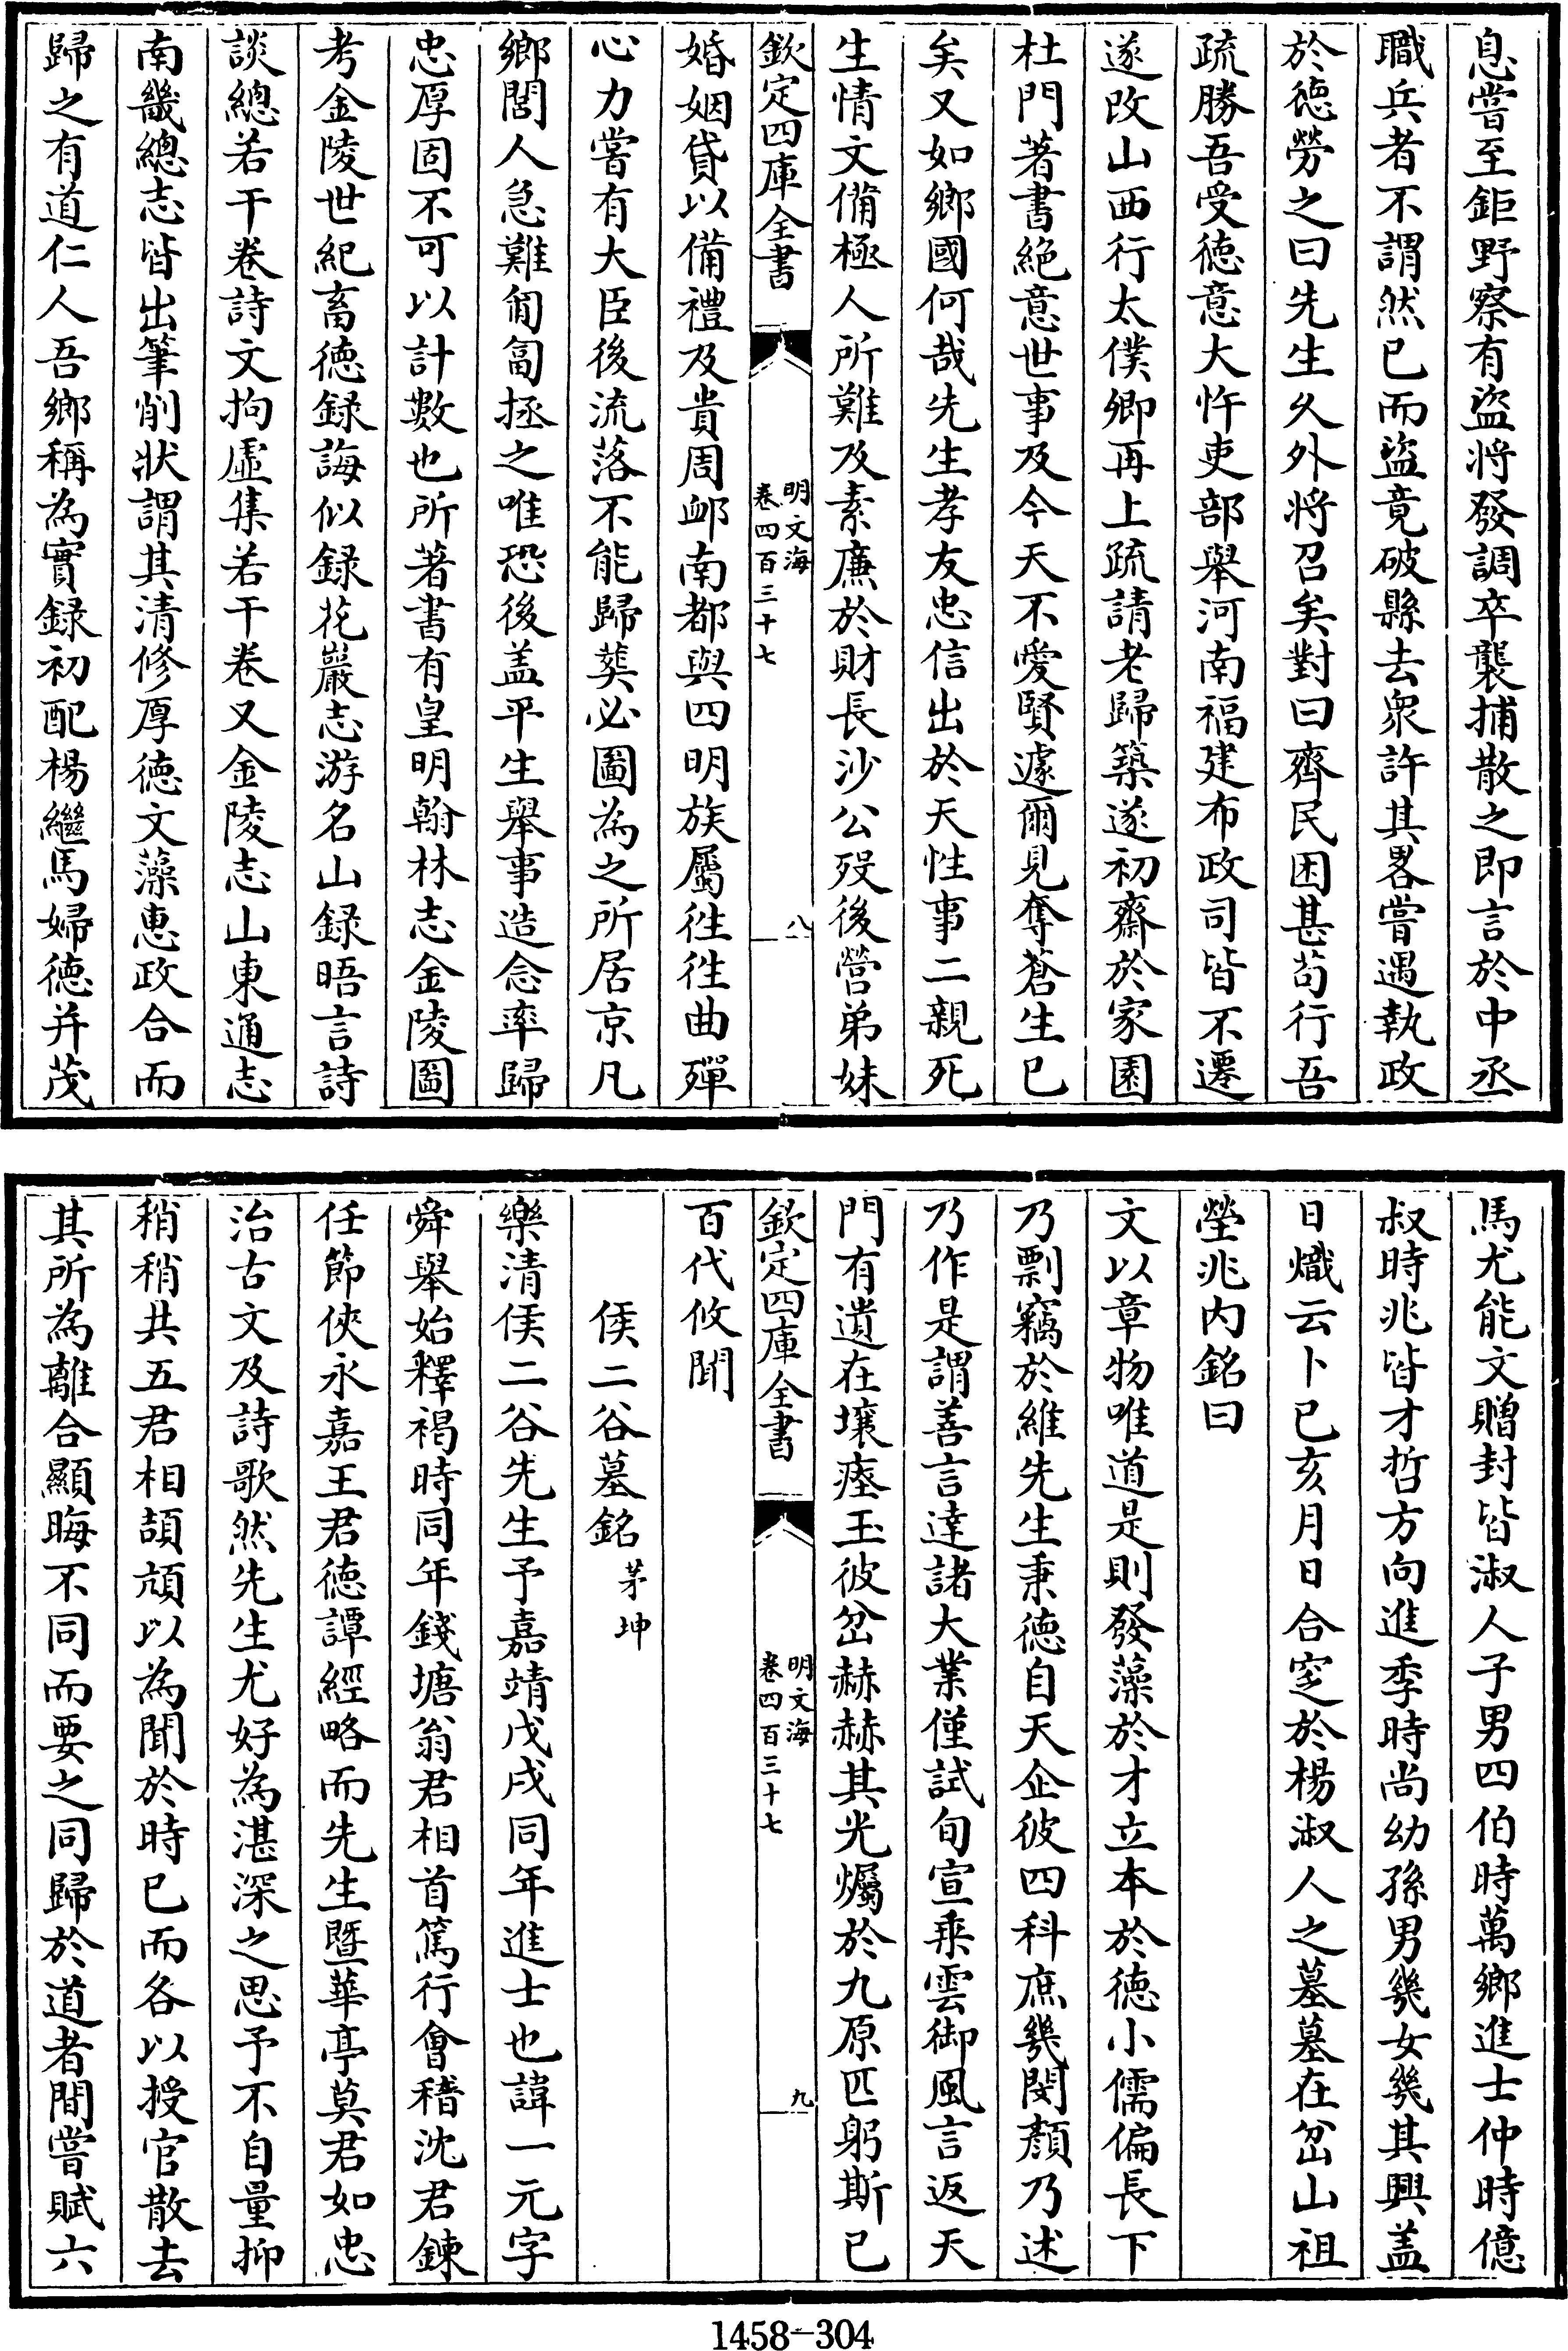 息嘗至鉅野察有盜將發調卒襲捕散之即言於中丞
職兵者不謂然已而盜竟破縣去衆許其畧嘗遇執政
於德勞之曰先生久外將召矣對曰齊民困甚苟行吾
疏勝吾受德意大忤吏部舉河南福建布政司皆不遷
遂改山西行太僕卿再上疏請老歸築遂初齋於家園
杜門著書絶意世事及今天不愛賢遽爾見奪蒼生已
矣又如鄉國何哉先生孝友忠信出於天性事二親死
生情文備極人所難及素廉於財長沙公歿後營弟妹
欽定四庫全書
明文海
卷四百三十七
八
婚姻貸以備禮及貴周䘏南都與四明族屬徃徃曲殫
心力嘗有大臣後流落不能歸葬必圖為之所居京凡
鄉閭人急難匍匐拯之唯恐後盖平生舉事造念率歸
忠厚固不可以計數也所著書有皇明翰林志金陵圖
考金陵世紀畜德録誨似録花巖志游名山録晤言詩
談總若干卷詩文拘虛集若干卷又金陵志山東通志
南畿總志皆出筆削狀謂其清修厚德文藻惠政合而
歸之有道仁人吾鄉稱為實録初配楊繼馬婦德并茂
馬尤能文贈封皆淑人子男四伯時萬鄉進士仲時億
叔時兆皆才哲方向進季時尚幼孫男幾女幾其興盖
日熾云卜已亥月日合窆於楊淑人之墓墓在岔山祖
塋兆内銘曰
文以章物唯道是則發藻於才立本於德小儒偏長下
乃剽竊於維先生秉德自天企彼四科庶幾閔顏乃述
乃作是謂善言達諸大業僅試旬宣乘雲御風言返天
門有遺在壤瘞玉彼岔赫赫其光爥於九原匹躬斯已
欽定四庫全書
明文海
卷四百三十七
九
百代攸聞
侯二谷墓銘 茅坤
樂清侯二谷先生予嘉靖戊戌同年進士也諱一元字
舜舉始釋褐時同年錢塘翁君相首篤行會稽沈君鍊
任節俠永嘉王君德譚經略而先生暨華亭莫君如忠
治古文及詩歌然先生尤好為湛深之思予不自量抑
稍稍共五君相頡頏以為聞於時已而各以授官散去
其所為離合顯晦不同而要之同歸於道者間嘗賦六
1458-304